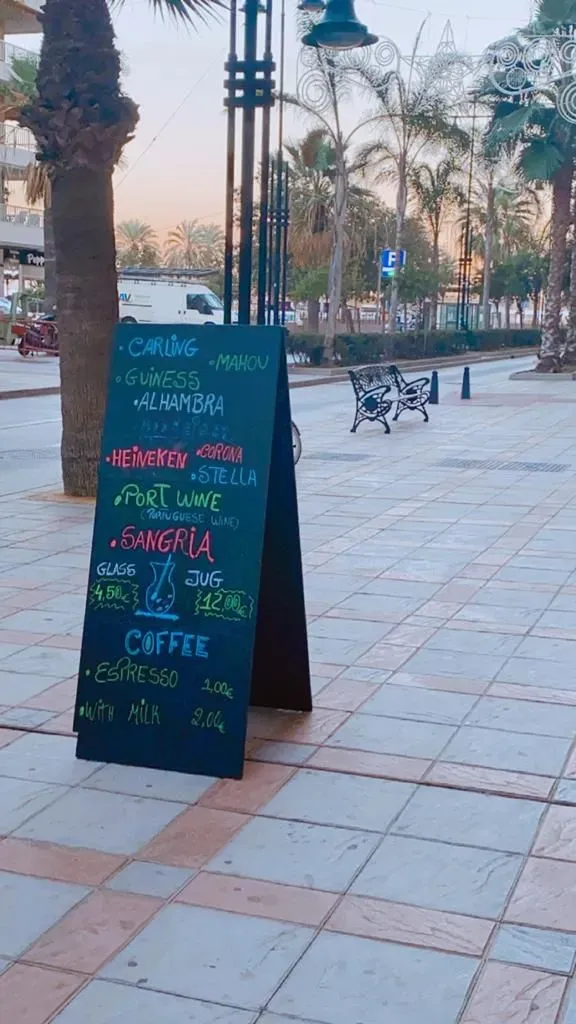 • CARLING
• MAHOU
• GUINESS
• ALHAMBRA
• HEINEKEN
• CORONA
• STELLA
• PORT WINE
(PORTUGUESE WINE)
• SANGRIA
GLASS JUG
4,50€ 12,00€
COFFEE
• ESPRESSO 2,00€
• WITH MILK 2,00€
P